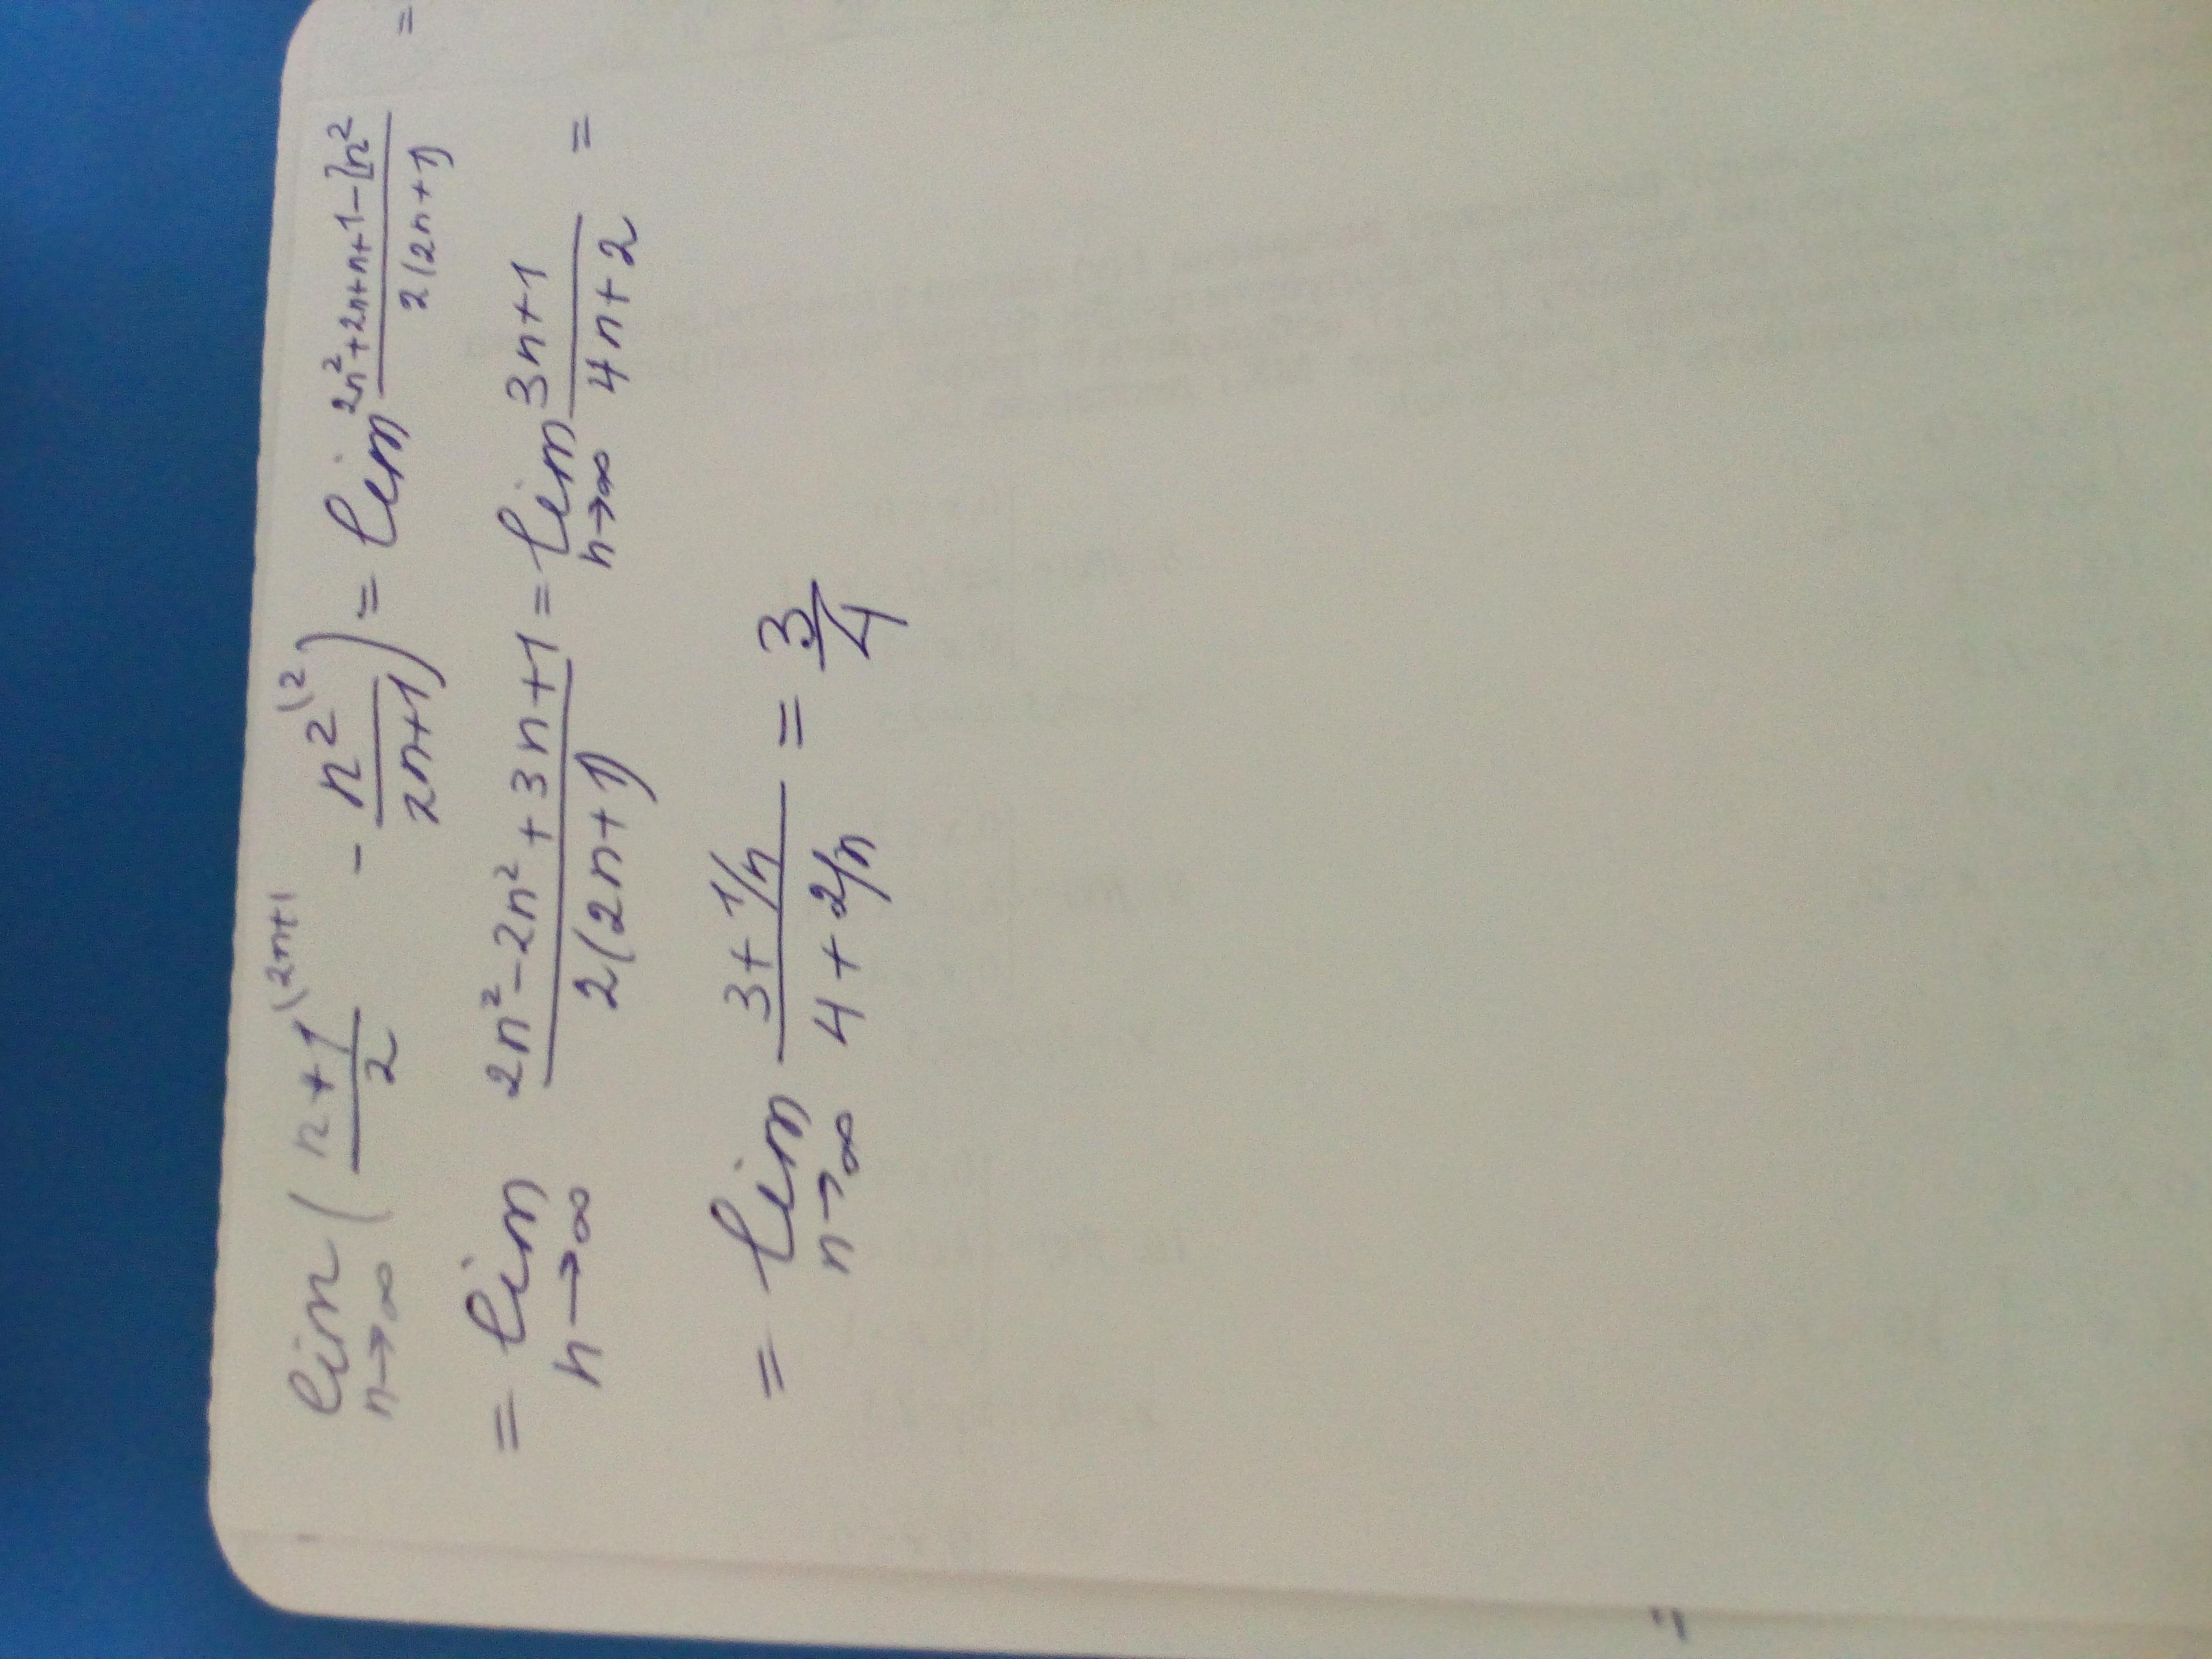 lim n→∞ ( n+1/2 \2n+1 - n²/2n+1 \2 ) = lim 2n²+2n+n+1-2n²/2(2n+1) =
= lim n→∞ 2n²-2n²+3n+1/2(2n+1) = lim n→∞ 3n+1/4n+2 =
= lim n→∞ 3+1/n/4+2/n = 3/4